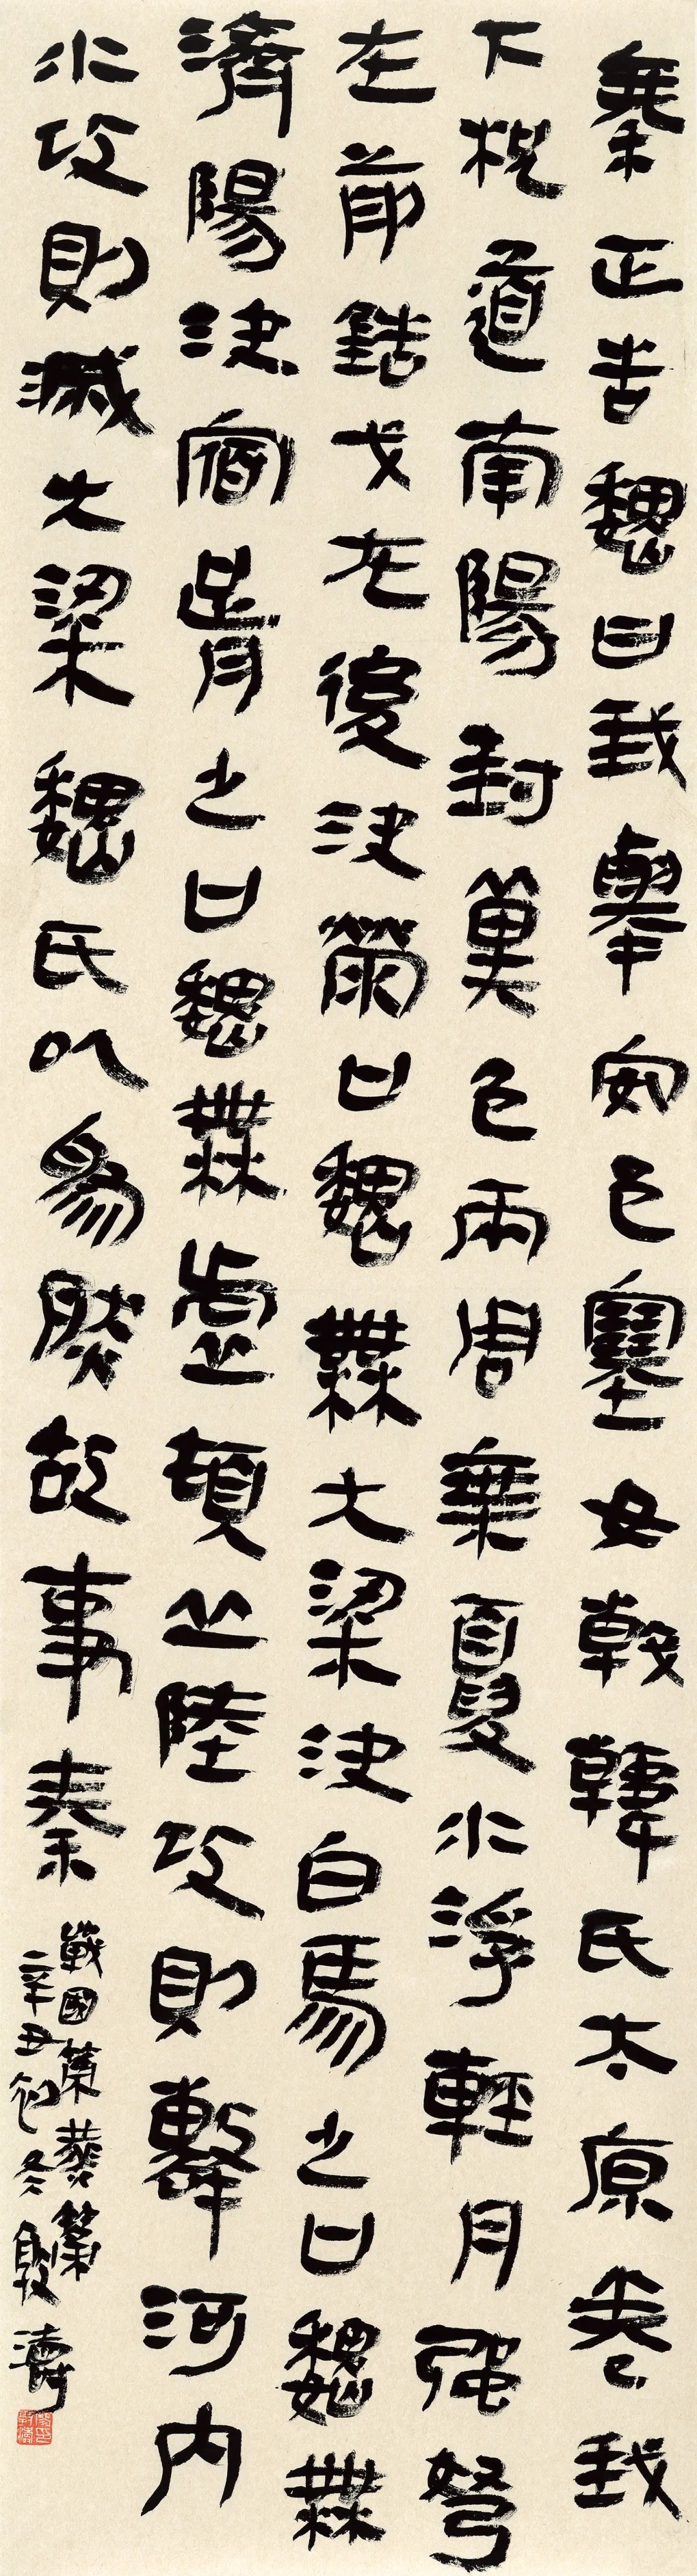 秦正告魏曰我舉安邑塞女戟韓氏太原卷我
下枳道南陽封冀包兩周乘夏水浮輕舟强弩
在前銛戈在後決滎口魏無大梁決白馬之口魏無
濟陽決宿胥之口魏無虛頓丘陸攻則擊河內
水攻則滅大梁魏氏以為然故事秦
戰國策燕策
辛丑初冬濤